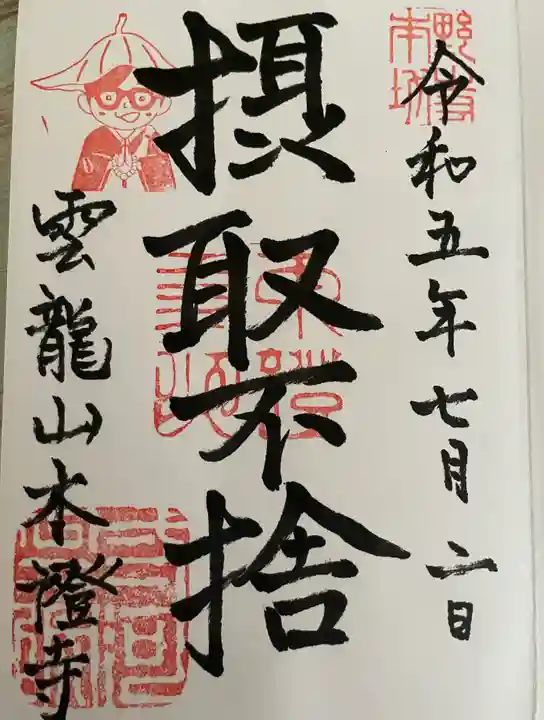 令和五年七月二日
摂取不捨
雲龍山本證寺